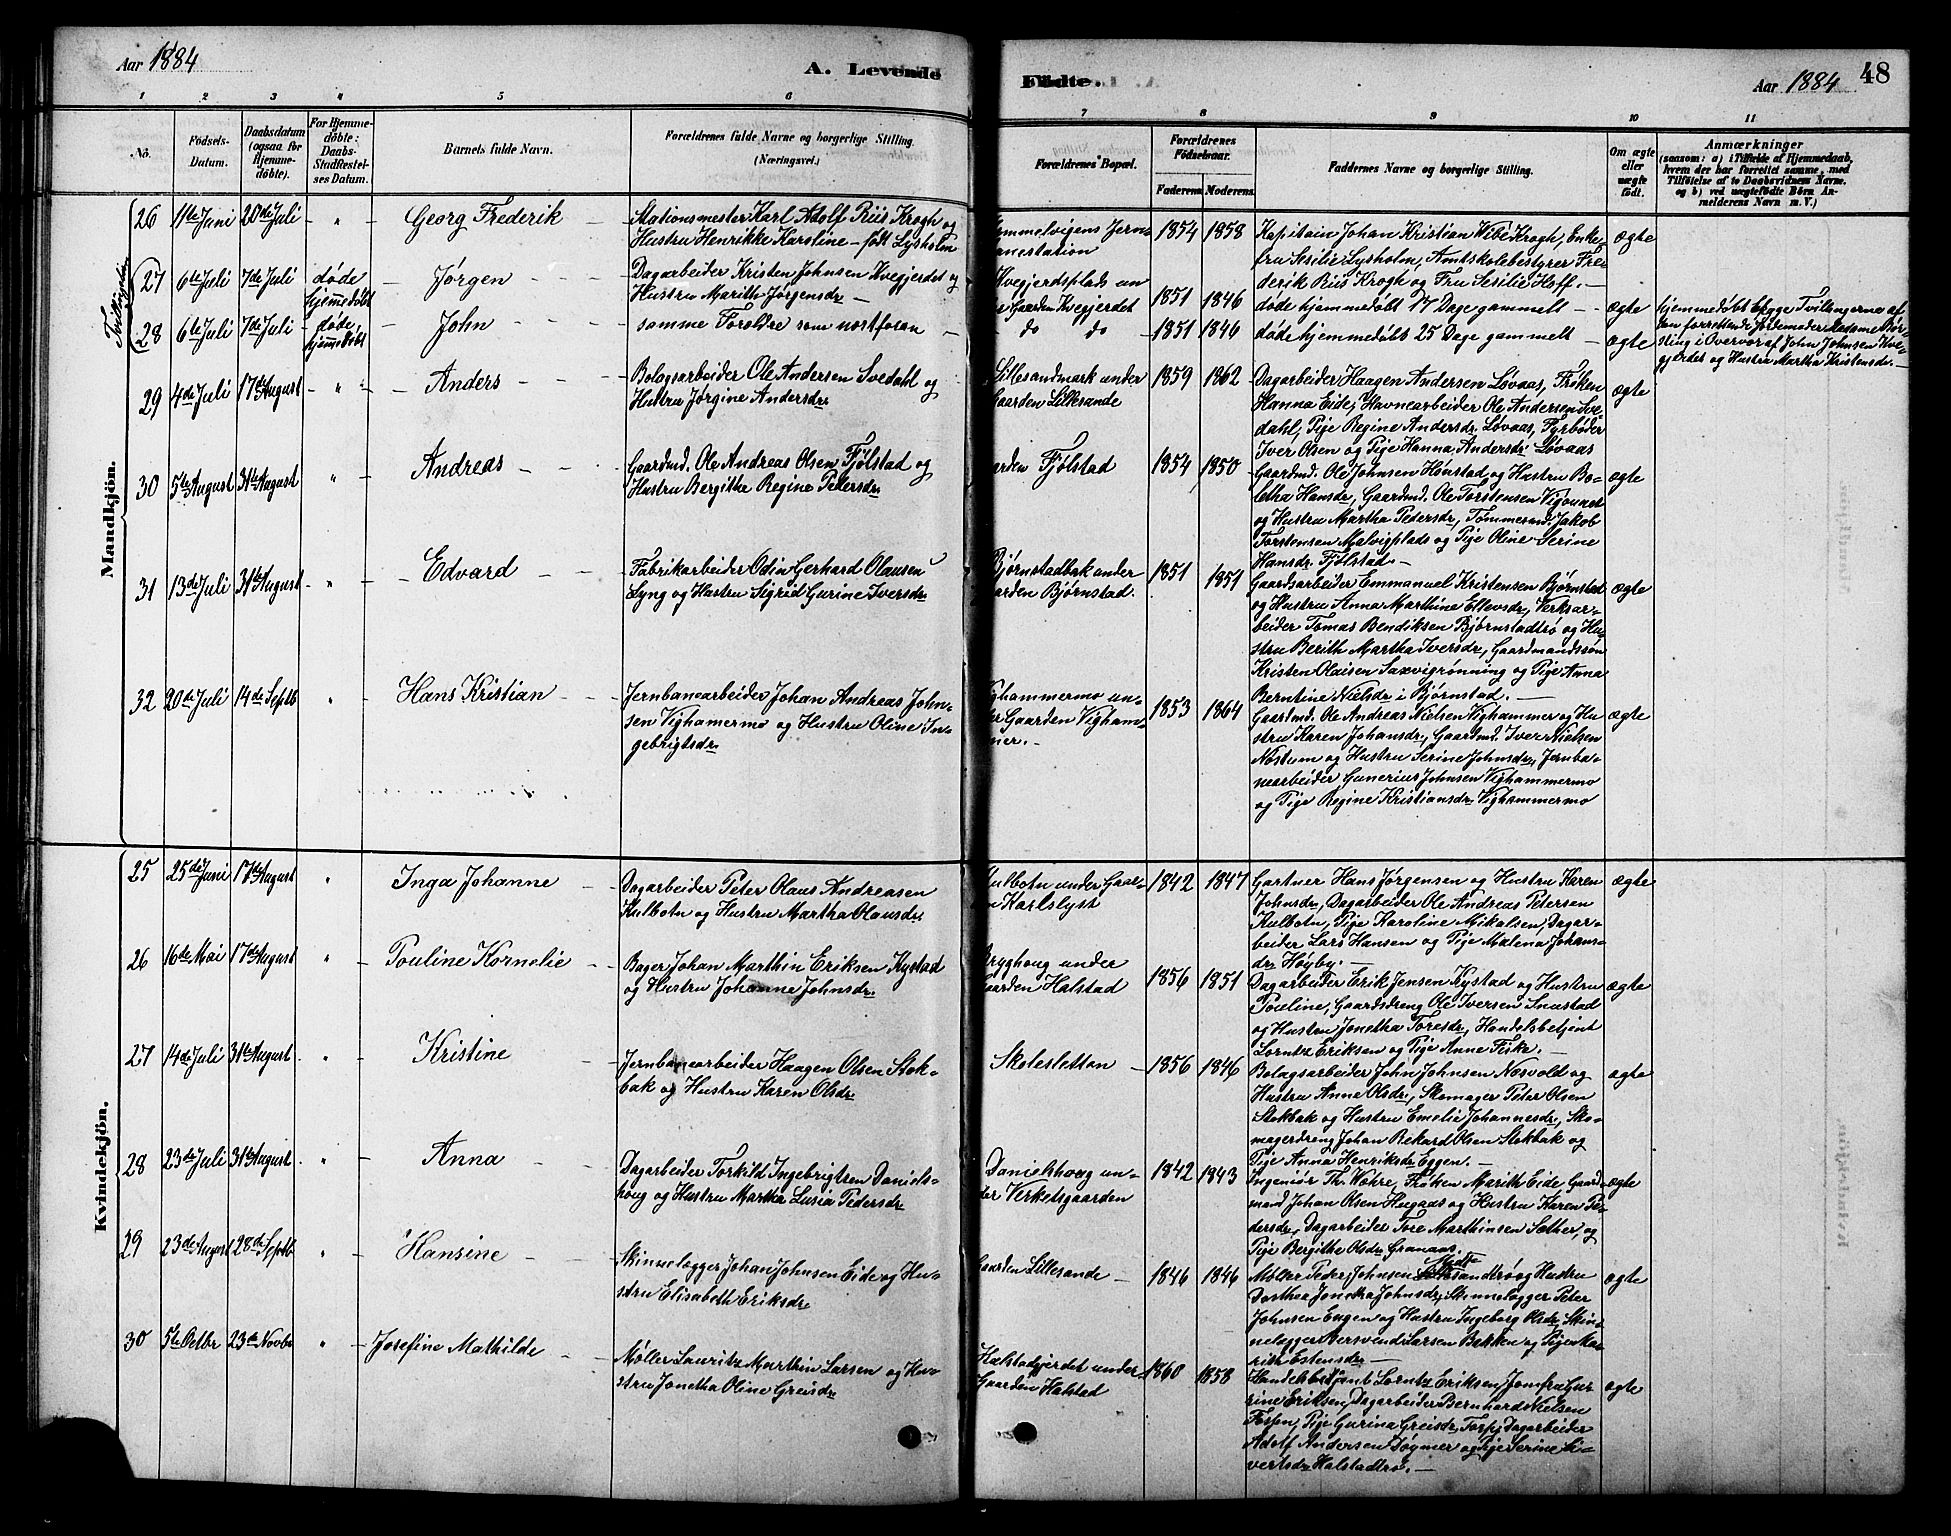 Aar 1884
A. Levende
Fødte.
Aar 1884
48
1 2 3 4 5 6 7 8 9 10 11
No.
Fødsels-
Datum.
Daabsdatum
(ogsaa for
Hjemme-
døbte).
For Hjemme-
døbte:
Daabs-
Stadfestel-
ses Datum.
Barnets fulde Navn.
Forældrenes fulde Navne og borgerlige Stilling.
(Næringsvei.)
Forældrenes Bopæl.
Forældrenes
Fødselsaar.
Faderens. Moderens.
Faddernes Navne og borgerlige Stilling.
Om ægte
eller
uægte
født.
Anmærkninger
(saasom: a) i Tilfælde af Hjemmedaab,
hvem der har forrettet samme, med
Tilføielse af to Daabsvidners Navne,
og b) ved uægtefødte Børn An-
melderens Navn m. V.)
Mandkjön.
26 11te Juni 20de Juli - " - Georg Frederik -
Stationsmester Karl Adolf Riis Krogh og
Hustru Henrikke Karoline - født Lysholm
Hommelvigens Jern-
banestation
1854 1858
Kapitain Johan Kristian Wibe Krogh, Enke-
fru Sesilie Lysholm, Amtskolebestyrer Fre-
derik Riis Krogh og Fru Sesilie Hoff. -
ægte
Tvillinger
27 6te Juli 7de Juli døde hjemmedøbt Jørgen -
Dagarbeider Kristen Johnsen Kvegjerdet og
Hustru Marith Jørgensdr -
Kvegjerdsplads un
Gaarden Kvegjerdet
1851 1846
døde hjemmedøbt 17 Dage gammelt - ægte
28 6te Juli 7de Juli døde hjemmedøbt John - - -
samme Foreldre som nestforan -
do do - 1851 1846
døde hjemmedøbt 25 Dage gammelt - ægte
hjemmedøbt begge Tvillingerne af
den forrettende Jordemoder Madame Bør-
sting i Overvær af John Johnsen Kve-
gjerdet og Hustru Martha Kristensdr -
29 4de Juli 17de August - " - Anders - - -
Bolagsarbeider Ole Andersen Svedahl og
Hustru Jørgine Andersdr
Lillesandmark under
Gaarden Lillesande
1859 1862
Dagarbeider Haagen Andersen Løvaas, Frøken
Hanna Eide, Havnearbeider Ole Andersen Sve-
dahl, Pige Regine Andersdr Løvaas, Fyrbøder
Iver Olsen og Pige Hanna Andersdr Løvaas
ægte
30 5te August 31te August " - Andreas - - -
Gaardmd. Ole Andreas Olsen Fjølstad og
Hustru Bergithe Regine Pedersdr
Gaarden Fjølstad
1854 1850
Gaardmd. Ole Johnsen Hønstad og Hustru Bo-
letha Hansdr, Gaardmd. Ole Torstensen
og Hustru Martha Pedersdr, Tømmermd. Jakob
Torstensen Malvigplads og Pige Oline Serine
Hansdr Fjølstad -
ægte
31 13de Juli 31te August - " - Edvard - -
Fabrikarbeider Odin Gerhard Olausen
Lyng og Hustru Sigrid Gurine Iversdr
Bjørnstadbak under
Gaarden Bjørnstad.
1851 1851
Gaardsarbeider Emmanuel Kristensen Bjørnstad
og Hustru Anna Marthine Ellevsdr, Verksar-
beider Tomas Bendiksen Bjørnstadtrø og Hu-
stru Berith Martha Iversdr, Gaardmandssøn
Kristen Olaisen Saxvigrønning og Pige Anna
Berntine Nielsdr i Bjørnstad. -
ægte
32 20de Juli 14de Septb " - Hans Kristian - -
Jernbanearbeider Johan Andreas John-
sen Vighamermo og Hustru Oline In-
gebrigtsdr
Vighammermo un-
der Gaarden Vigham-
mer. -
1853 1864
Gaardmd. Ole Andreas Nielsen Vighammer og Hu
stru Karen Johansdr, Gaardmd. Iver Nielsen
Nostum og Hustru Serine Johnsdr, Jernba-
nearbeider Gunerius Johnsen Vighammermo
og Pige Regine Kristiansdr Vighammermo
ægte
Kvindekjön.
25 25de Juni 17de August " Inga Johanne -
Dagarbeider Peter Olaus Andreasen
Kulbotn og Hustru Martha Olausdr
Kulbotn under Gaar-
den Karlslyst
1842 1847
Gartner Hans Jørgensen og Hustru Karen
Johnsdr, Dagarbeider Ole Andreas Petersen
Kulbotn, Pige Karoline Mikalsen, Dagar-
beider Lars Hansen og Pige Malena Johans-
dr Høyby. -
ægte
26 16de Mai 17de August " - Pouline Kornelie -
Bager Johan Marthin Eriksen Kystad
og Hustru Johanne Johnsdr.
Bryghoug under
Gaarden Halstad
1856 1851
Dagarbeider Erik Jensen Kystad og Hustru
Pouline, Gaardsdreng Ole Iversen Snustad
og Hustru Jonetha Toresdr, Handelsbetjent
Lorntz Eriksen og Pige Anne Fiske. -
ægte
27 14de Juli 31te August " - Kristine -
Jernbanearbeider Haagen Olsen Stok-
bak og Hustru Karen Olsdr
Skolesletten -
1856 1846
Bolagsarbeider John Johnsen Nesvold og
Hustru Anne Olsdr, Skomager Peter Olsen
Stokbak og Hustru Emelie Johannesdr, Sko-
magerdreng Johan Rekard Olsen Stokbak og
Pige Anna Henriksdr Eggen. -
ægte
28 23de Juli 31te August " - Anna -
Dagarbeider Torkild Ingebrigtsen Daniels-
houg og Hustru Martha Lusia Pedersdr
Danielshoug un-
der Verketsgaarden
1842 1843
Ingeniør Th. Wøhre, Frøken Marith Eide Gaard-
mand Johan Olsen Hugaas og Hustru Karen Pe-
dersdr, Dagarbeider Tore Marthinsen Sather, og
Pige Bergithe Olsdr Granaas.
ægte
29 23de August 28de Septb " - Hansine -
Skinnelægger Johan Johnsen Eide og Hu-
stru Elisabeth Eriksdr
Gaarden Lillesande -
1846 1846
Møller Peder Johnsen sandtrø og Hustru
Dorthea Jonetha Johnsdr, Skinnelægger Peter
Johnsen Engen og Hustru Ingeborg Olsdr, Skin-
nelægger Bersvend Larsen Bakken og Pige Ka-
rith Estensdr -
ægte
30 5te Octbr 23de Novbr " - Josefine Mathilde -
Møller Lauritz Marthin Larsen og Hu-
stru Jonetha Oline Greisdr
Halstadgjerdet under
Gaarden Halstad
1860 1858
Handelsbetjent Lorntz Eriksen, Jomfru Gu-
rine Eriksen, Dagarbeider Bernhard Nielsen
Torpen, Pige Gurina Greisdr Torp, Dagarbeider
Adolf Andersen Døgmer og Pige Serine Si-
vertsdr Halstadtrø. -
ægte